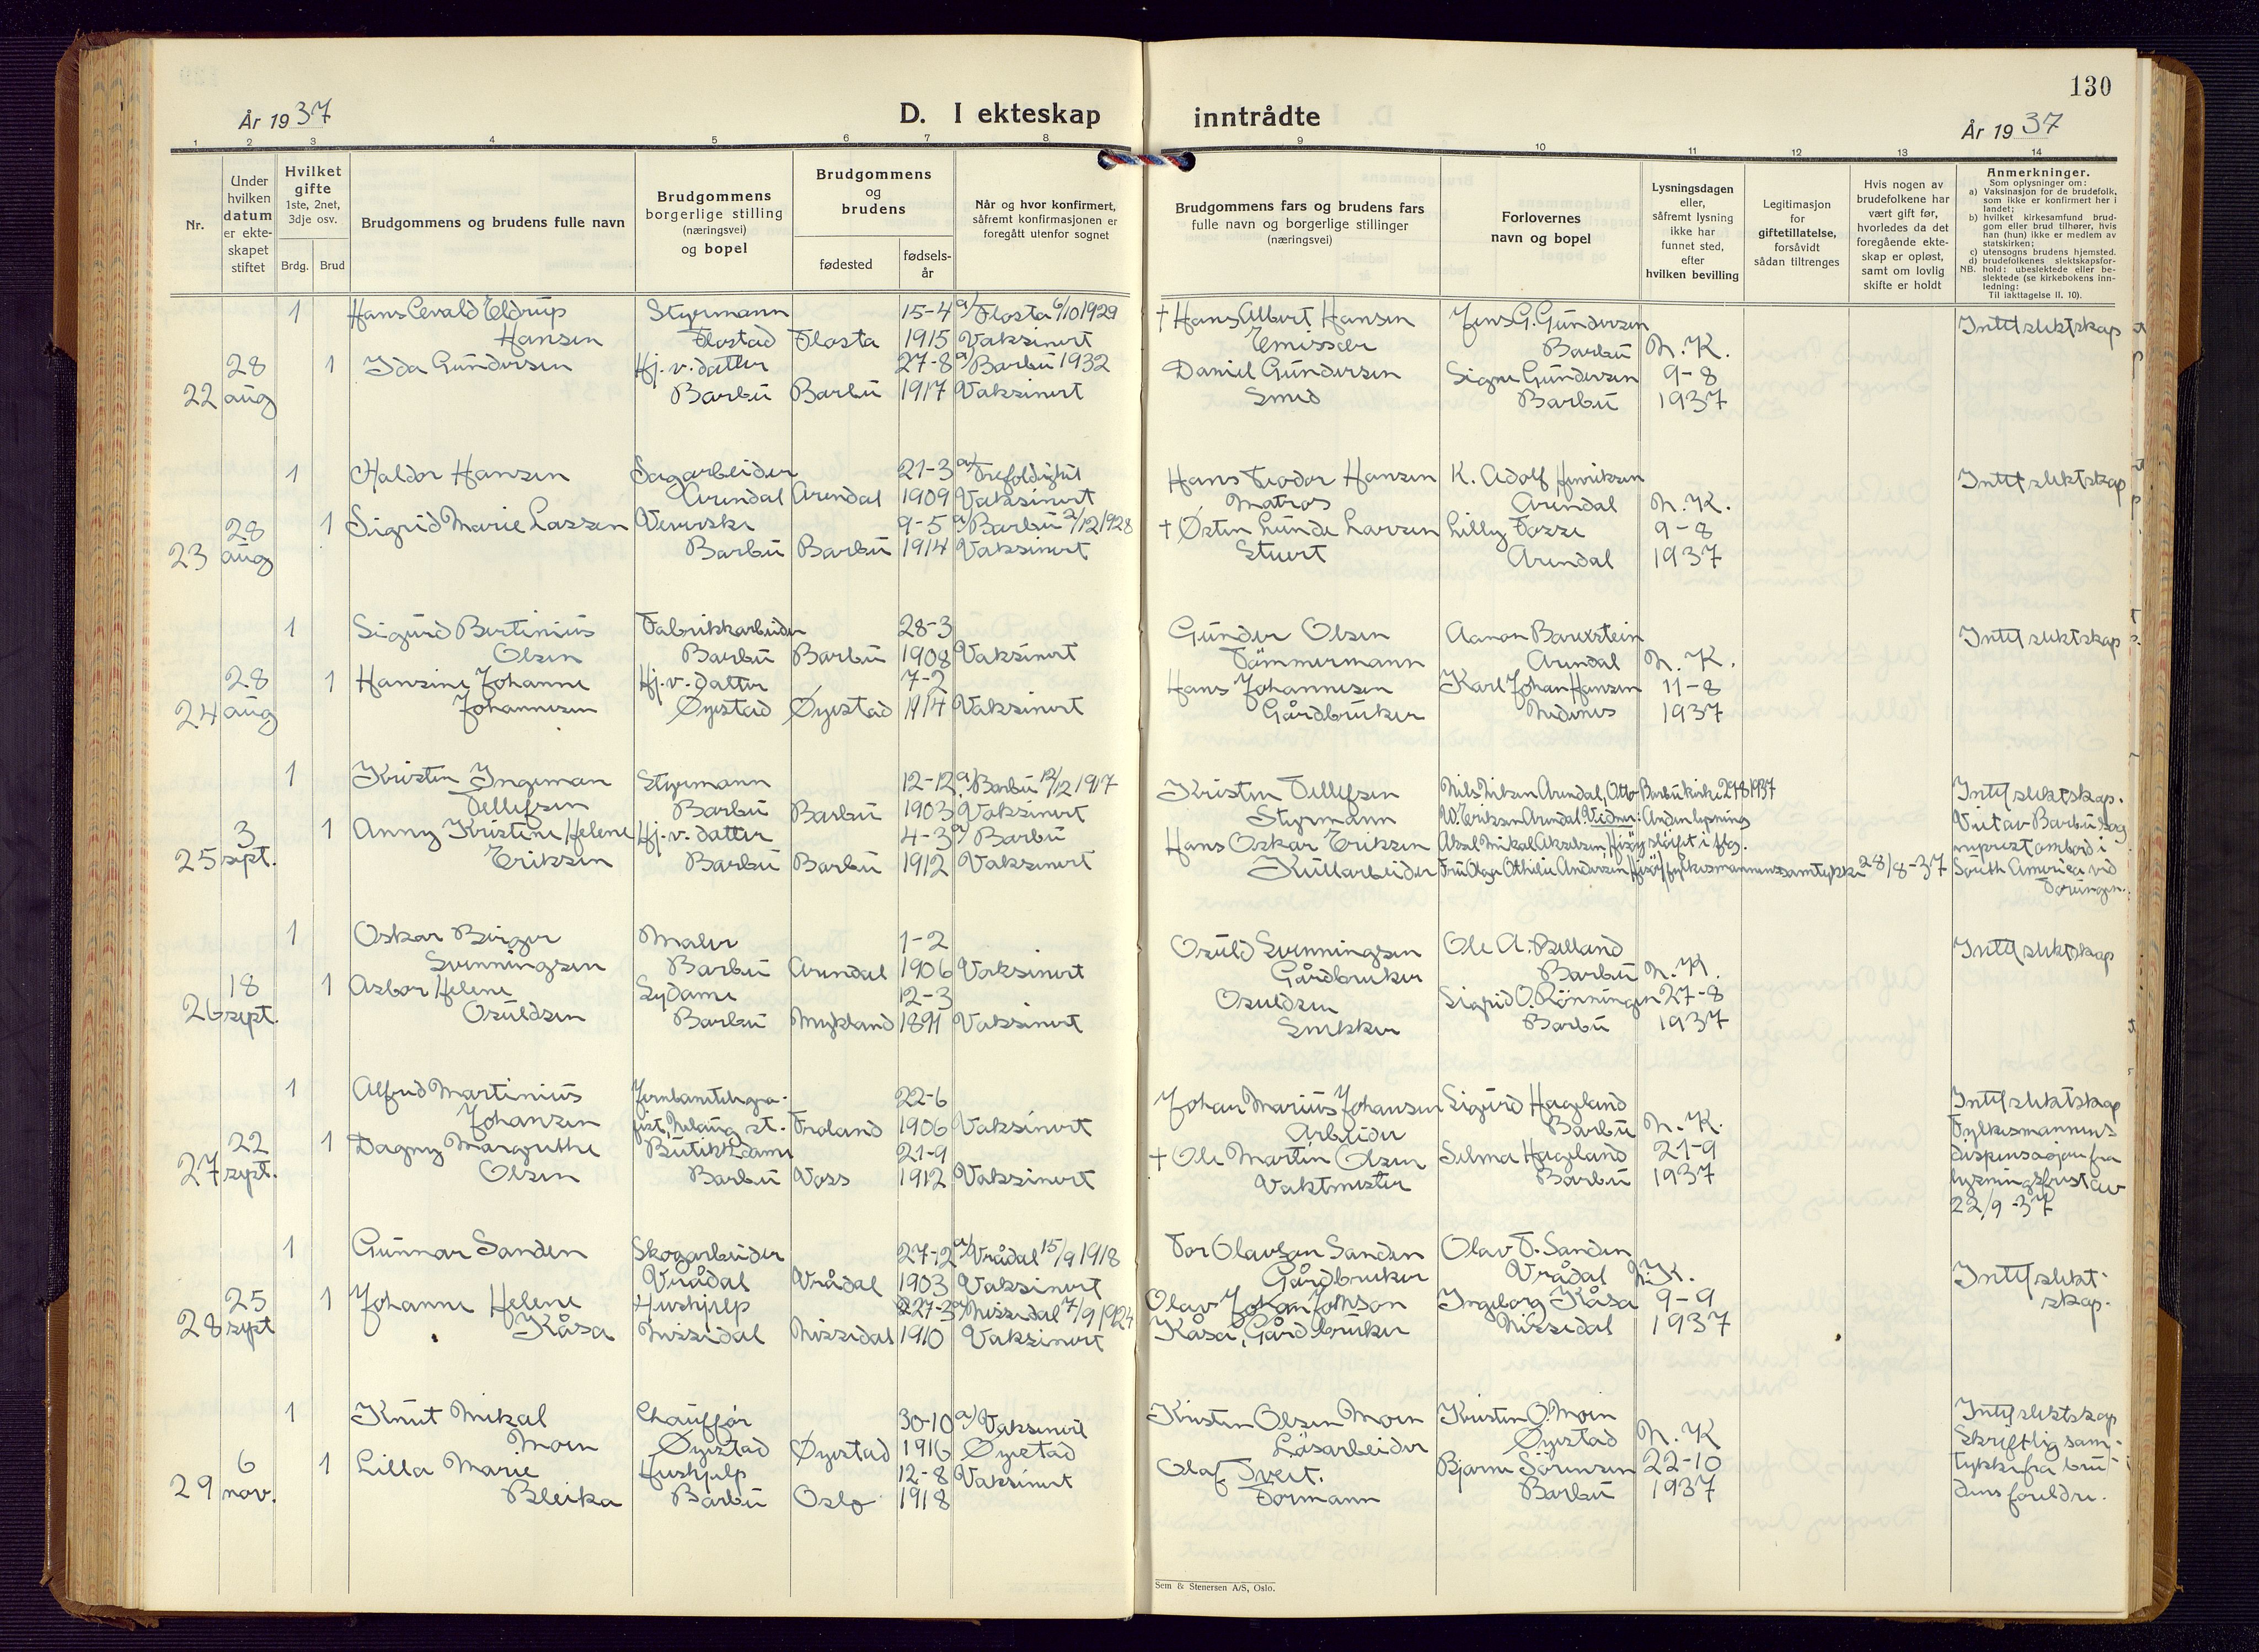 130
År 1937
D. I ekteskap
inntrådte
År 1937
1 2 3 4 5 6 7 8 9 10 11 12 13 14
Nr.
Under
hvilken
datum
er ekte-
skapet
stiftet
Hvilket
gifte
1ste, 2net,
3dje osv.
Brdg. Brud
Brudgommens og brudens fulle navn
Brudgommens
borgerlige stilling
(næringsvei)
og bopel
Brudgommens
og
brudens
fødested
fødsels-
år
Når og hvor konfirmert,
såfremt konfirmasjonen er
foregått utenfor sognet
Brudgommens fars og brudens fars
fulle navn og borgerlige stillinger
(næringsvei)
Forlovernes
navn og bopel
Lysningsdagen
eller,
såfremt lysning
ikke har
funnet sted,
efter
hvilken bevilling
Legitimasjon
for
giftetillatelse,
forsåvidt
sådan tiltrenges
Hvis nogen av
brudefolkene har
vært gift før,
hvorledes da det
foregående ekte-
skap er opløst,
samt om lovlig
skifte er holdt
Anmerkninger.
Som oplysninger om:
a) Vaksinasjon for de brudefolk,
som ikke er konfirmert her i
landet;
b) hvilket kirkesamfund brud-
gom eller brud tilhører, hvis
han (hun) ikke er medlem av
statskirken;
c) utensogns brudens hjemsted.
d) brudefolkenes slektskapsfor-
NB. hold: ubeslektede eller be-
slektede (se kirkebokens inn-
ledning:
Til iakttagelse II. 10).
1 Hans Evald Eldrup Styrmann 15-4 a/ Flosta 6/10 1929 † Hans Albert Hansen Jens G. Gundersen Intet slektskap
Hansen Flostad Flosta 1915 Vaksinert Emissær Barbu N. K.
28 1 Ida Gundersen Hj. v. datter 27-8 a/ Barbu 1932 Daniel Gundersen Signe Gundersen 9-8
22 aug Barbu Barbu 1917 Vaksinert Smed Barbu 1937
1 Haldor Hansen Sagarbeider 21-3 a/ Trefoldighet Hans Teodor Hansen K. Adolf Henriksen Intet slektskap
Arendal Arendal 1909 Vaksinert Matros Arendal N. K.
28 1 Sigrid Marie Larsen Veverske 9-5 a/ Barbu 2/12 1928 † Østen Lunde Larsen Lilly Fosse 9-8
23 aug Barbu Barbu 1914 Vaksinert Stuert Arendal 1937
1 Sigurd Bertinius Fabrikkarbeider 28-3 Gunder Olsen Aanon Barexstein Intet slektskap
Olsen Barbu Barbu 1908 Vaksinert Tømmermann Arendal N. K.
28 1 Hansine Johanne Hj. v. datter 7-2 Hans Johannesen Karl Johan Hansen 11-8
24 aug Johannesen Øyestad Øyestad 1914 Vaksinert Gårdbruker Nedenes 1937
1 Kristen Ingeman Styrmann 12-12 a/ Barbu 12/12 1917 Kristen Tellefsen Nils Nilsen Arendal, Otto Barbu kirke 29/8 1937 Intet slektskap.
Tellefsen Barbu Barbu 1903 Vaksinert Styrmann W. Eriksen Arendal. Vidner: Anden lysning Viet av Barbu sog
3 1 Anny Kristine Helene Hj. v. datter 4-3 a/ Barbu Hans Oskar Eriksen Aksel Mikal Akselsen, Hisøy sløifet i flg. neprest ombord i
25 sept. Eriksen Barbu Barbu 1912 Vaksinert Kullarbeider Fru Olga Othilie Andersen, Hisøy fylkesmannens samtykke 28/8-37 South America ved
Torungen.
1 Oskar Birger Maler 1-2 Osuld Svenningsen Ole A. Belland Intet slektskap
Svenningsen Barbu Arendal 1906 Vaksinert Gårdbruker Barbu N. K.
18 1 Asbor Helene Sydame 12-3 Osuldsen Sigrid O. Rønningen 27-8
26 sept. Osuldsen Barbu Mykland 1891 Vaksinert Snekker Barbu 1937
1 Alfred Martinius Jernbanetelegra- 22-6 Johan Marius Johansen Sigurd Haaland Intet slektskap
Johansen fist, Nelaug st. Froland 1906 Vaksinert Arbeider Barbu N. K. Fylkesmannens
22 1 Dagny Margrethe Butikkdame 21-9 † Ole Martin Olsen Selma Haaland 21-9 dispensasjon fra
27 sept. Olsen Barbu Voss 1912 Vaksinert Vaktmester Barbu 1937 lysningsfrist av
22/9-37
1 Gunnar Sanden Skogarbeider 27-12 a/ Vrådal 15/9 1918 Tor Olavson Sanden Olav T. Sanden
Vrådal Vrådal 1903 Vaksinert Gårdbruker Vrådal N. K. Intet slekt-
25 1 Johanne Helene Hushjelp 27-3 a/ Nissedal 7/9 1924 Olav Johan Johnson Ingeborg Kåsa 9-9 skap.
28 sept Kåsa Nissedal Nissedal 1910 Vaksinert Kåsa, Gårdbruker Nissedal 1937
1 Knut Mikal Chauffør 30-10 a/ Vaksinert Kristen Olsen Moen Kristen O. Moen Intet slektskap
Moen Øyestad Øyestad 1916 Øyestad Løsarbeider Øyestad N. K Skriftlig sam-
6 1 Lilla Marie Hushjelp 12-8 Vaksinert Olaf Tveit. Bjarne Sørensen 22-10 tykke fra bru-
29 nov. Bleika Barbu Oslo 1918 Formann Barbu 1937 dens foreldre.
Sem & Stenersen A/S, Oslo.